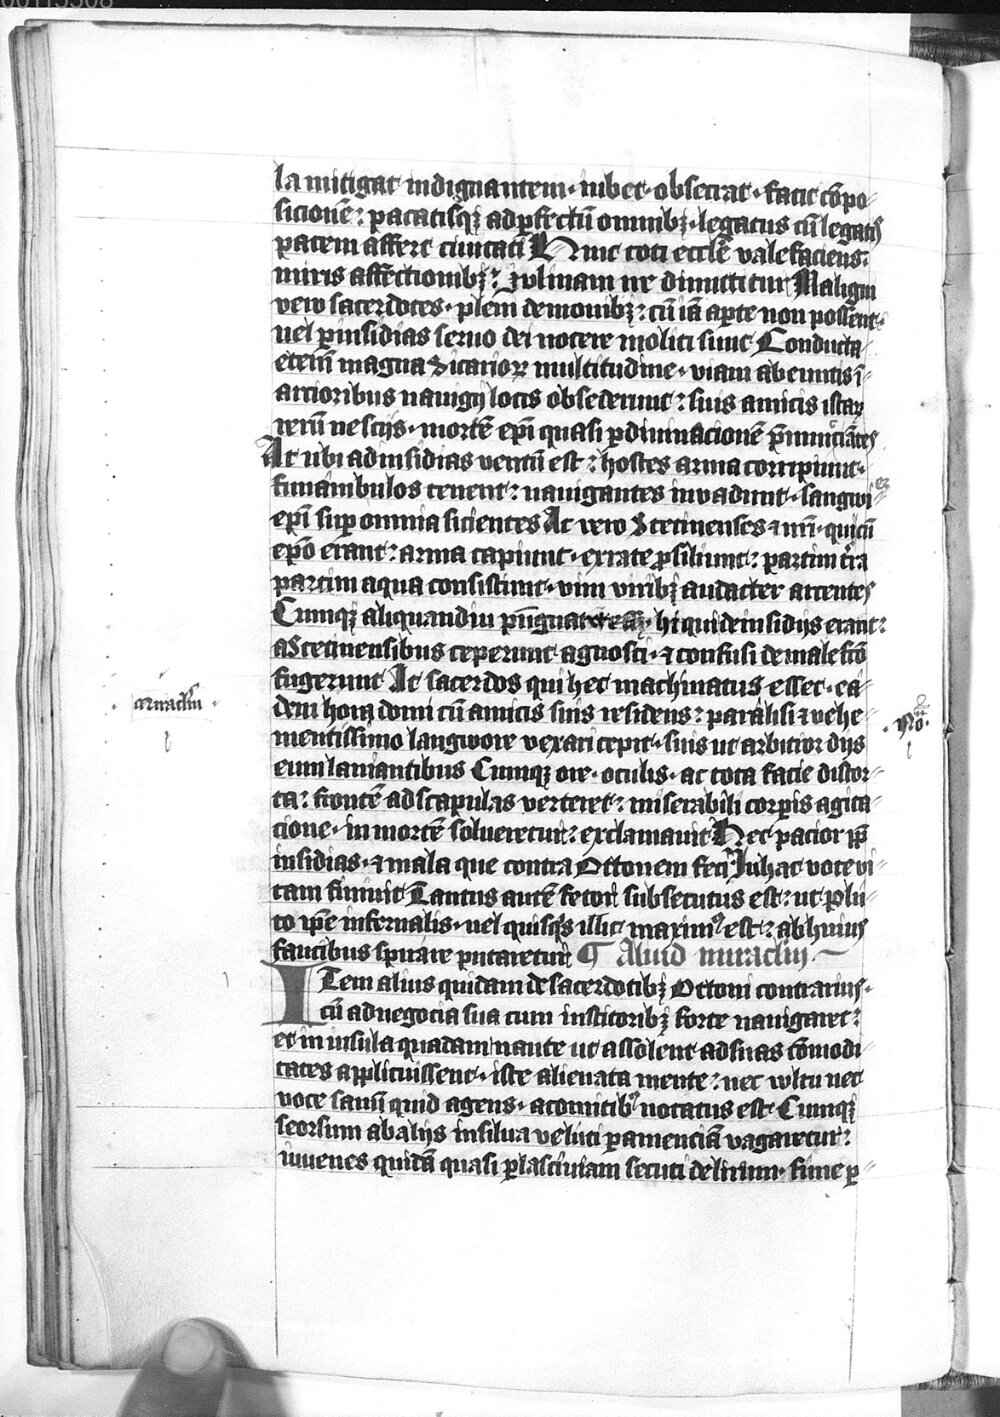 la mitigat indignantem · iubet · obsecrat · facit cōpo-
sicionē : pacatisqȝ ad ꝑfectū omnibȝ · legatus cū legatis
pacem affert ciuitati Hinc toti eccłe valefaciens :
miris affectionibȝ : Iulinam ire dimittitur Maligni
vero sacerdotes · pleni demonibȝ : cū iā aꝑte non possent ·
uel ꝑ insidias seruo dei nocere moliti sunt Conducta
etenī magna Sicarioꝝ multitudine · viam abeuntis ī
arctioribus nauigij locis obsederunt : suis amicis istaꝝ
rerū nescijs · mortē ep̄i quasi ꝑ diuinacionē p̄nunciātes
At ubi ad insidias ventū est : hostes arma corripiunt ·
funambulos tenent : nauigantes inuadunt · sangwinē
ep̄i suꝑ omnia sicientes At vero Stetinenses ⁊ nr̄i · qui cū
ep̄o erant : arma capiunt · ex rate ꝓsiliunt : partim t̄ra
partim aqua consistunt · vim viribȝ audacter arcentes
Cumqȝ aliquandiu pugnatū hi qui de insidijs erant :
a Stetinensibus ceperunt agnosci · ⁊ confusi de malefc̄o
fugerunt At sacerdos qui hec machinatus esset · ea-
dem hora domi cū amicis suis residens : paralisi ⁊ vehe-
mentissimo langwore vexari cepit · suis ut arbitror dijs
eum laniantibus Cumqȝ ore · oculis · ac tota facie distor-
ta : frontē ad scapulas verteret : miserabili corꝑis agita-
cione · in mortē solueretur : exclamauit Hec pacior ꝓpt̄
insidias · ⁊ mala que contra Ottonem feci In hac voce vi-
tam finiuit Tantus autē fetor subsecutus est : ut Plu-
to ip̄e infernalis · uel quisqȝ illic maxim⁹ est : ab huius
faucibus spirare putaretur ¶ Aliud miraclm̄
Item alius quidam de sacerdotibȝ Ottoni contrarius ·
cū ad negocia sua cum institoribȝ forte nauigaret :
et in insula quadam naute ut assolent ad suas cōmodi-
tates applicuissent · iste alienata mente : nec vultu nec
voce sanū quid agens · a comitib⁹ notatus est Cumqȝ
seorsum ab alijs in silua veluti ꝑ amenciā vagaretur :
iuuenes quidā quasi ꝑ lasciuiam secuti delirum · fune ꝑ-
miraclm̄
No